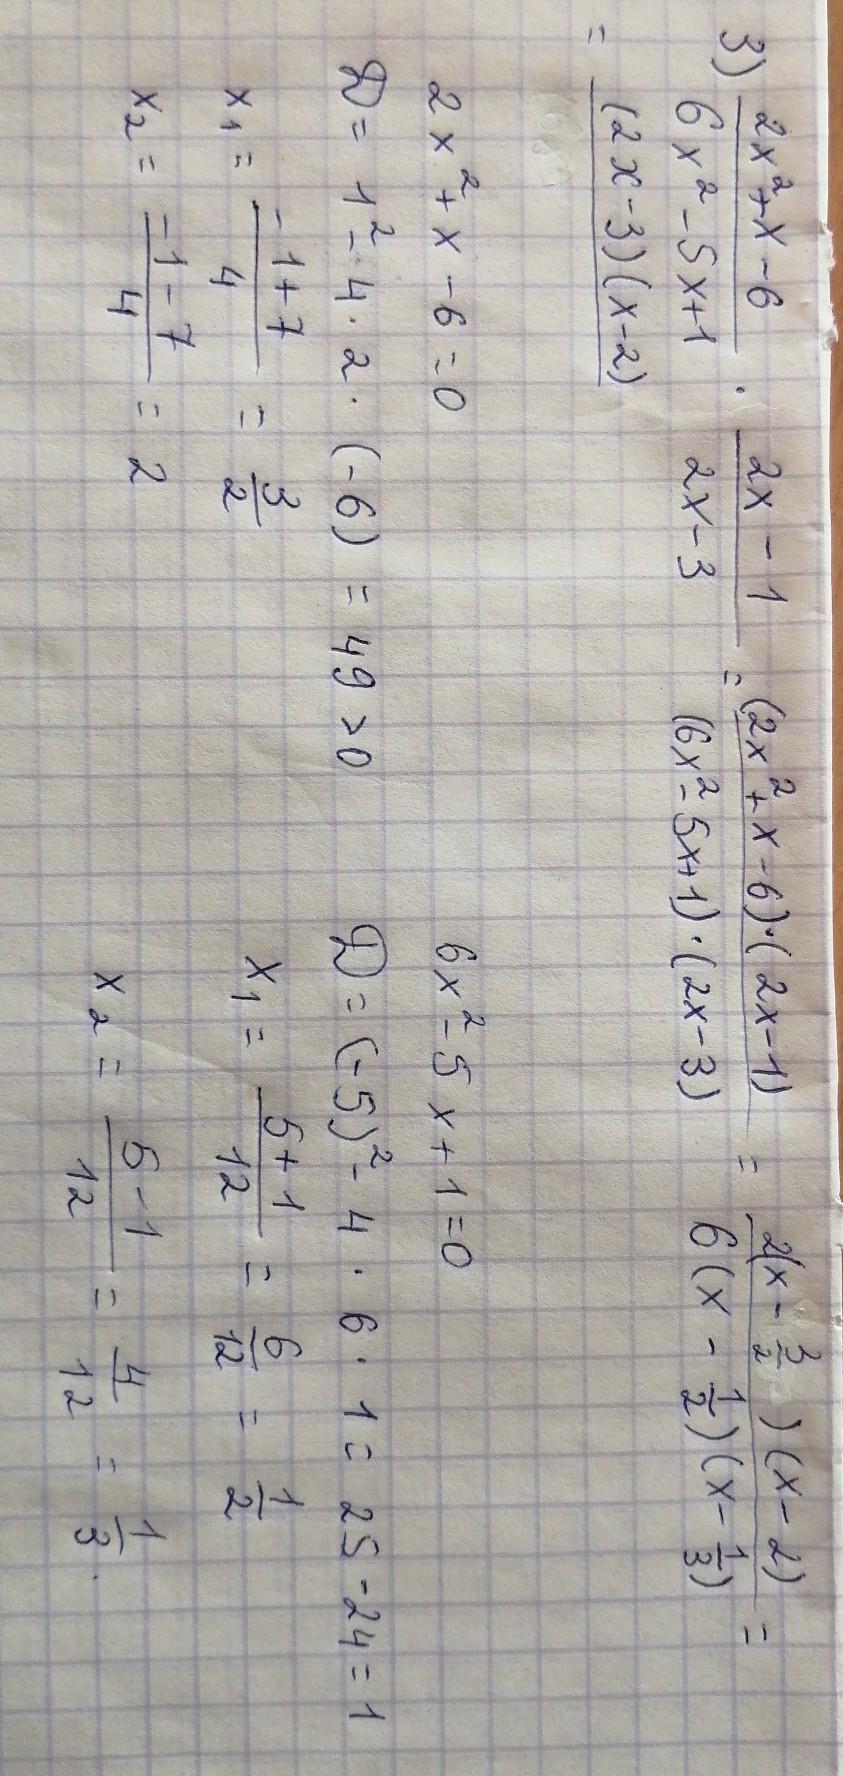 3) (2x² + x - 6)/(6x² - 5x + 1) · (2x - 1)/(2x - 3) = ((2x² + x - 6)·(2x - 1))/((6x² - 5x + 1)·(2x - 3)) = (2(x - 3/2)(x - 2))/(6(x - 1/2)(x - 1/3)) =
= (2x - 3)(x - 2)
2x² + x - 6 = 0
D = 1² - 4 · 2 · (-6) = 49 > 0
x₁ = (-1 + 7)/4 = 3/2
x₂ = (-1 - 7)/4 = 2
6x² - 5x + 1 = 0
D = (-5)² - 4 · 6 · 1 = 25 - 24 = 1
x₁ = (5 + 1)/12 = 6/12 = 1/2
x₂ = (5 - 1)/12 = 4/12 = 1/3.